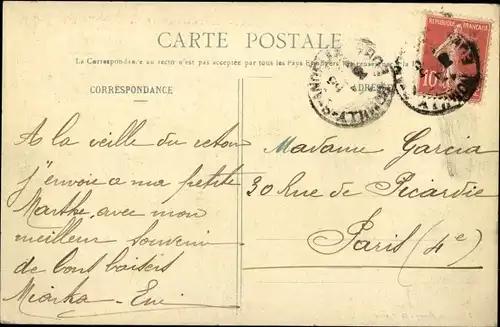 CARTE POSTALE
La Correspondance au recto n'est pas acceptée par tous les Pays Etrangers
CORRESPONDANCE
ADRES
RÉPUBLIQUE FRANÇAISE
10
A la veille du retour
j'envoie à ma petite
Marthe, avec mon
meilleur souvenir
de bons baisers
Miarka -
Madame Garcia
30 Rue de Picardie
Paris (4e)